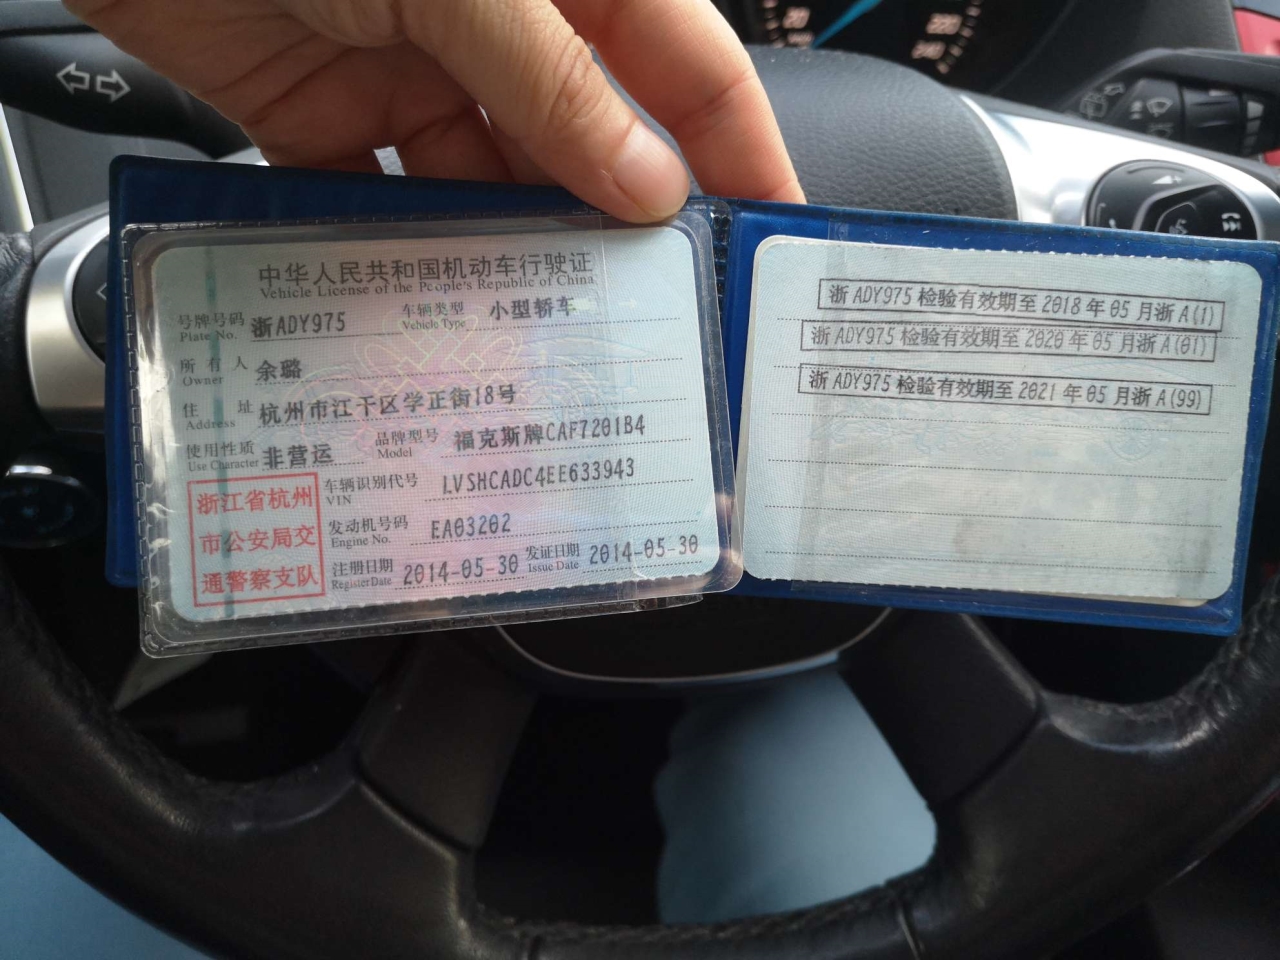 中华人民共和国机动车行驶证
Vehicle License of the People's Republic of China
号牌号码 浙ADY975 车辆类型 小型轿车
Plate No. Vehicle Type
所有人 余璐
Owner
住址 杭州市江干区学正街18号
Address
使用性质 非营运 品牌型号 福克斯牌CAF7201B4
Use Character Model
浙江省杭州
市公安局交
通警察支队
车辆识别代号 LVSHCADC4EE633943
VIN
发动机号码 EA03202
Engine No.
注册日期 2014-05-30 发证日期 2014-05-30
Register Date Issue Date
浙ADY975检验有效期至2018年05月浙A(1)
浙ADY975检验有效期至2020年05月浙A(01)
浙ADY975检验有效期至2021年05月浙A(99)
20
220
240